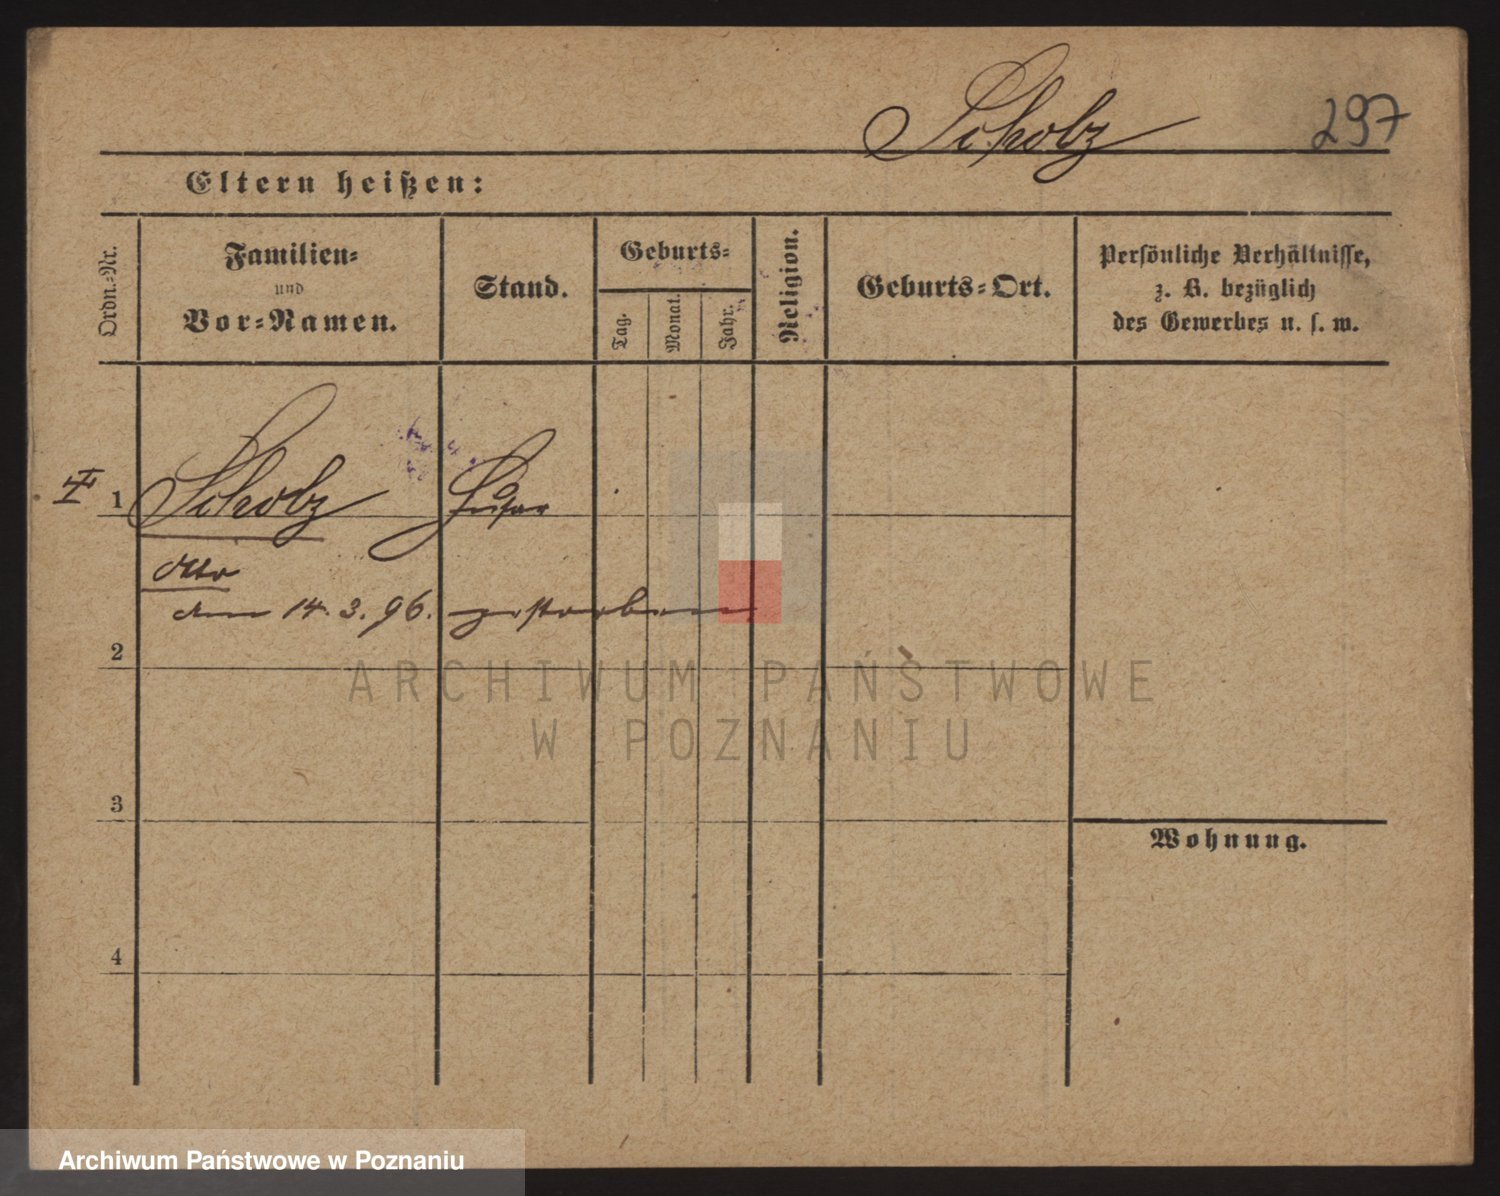 Scholz
297
Eltern heißen:
Ordn.-Nr.
Familien-
und
Vor-Namen.
Stand.
Geburts-
Tag.
Monat.
Jahr.
Religion.
Geburts-Ort.
Persönliche Verhältnisse,
z. B. bezüglich
des Gewerbes u. s. w.
1 Scholz Husar
Otto
den 14. 3. 96. gestorben
2
3
4
Wohnung.
ARCHIWUM PAŃSTWOWE
W POZNANIU
Archiwum Państwowe w Poznaniu